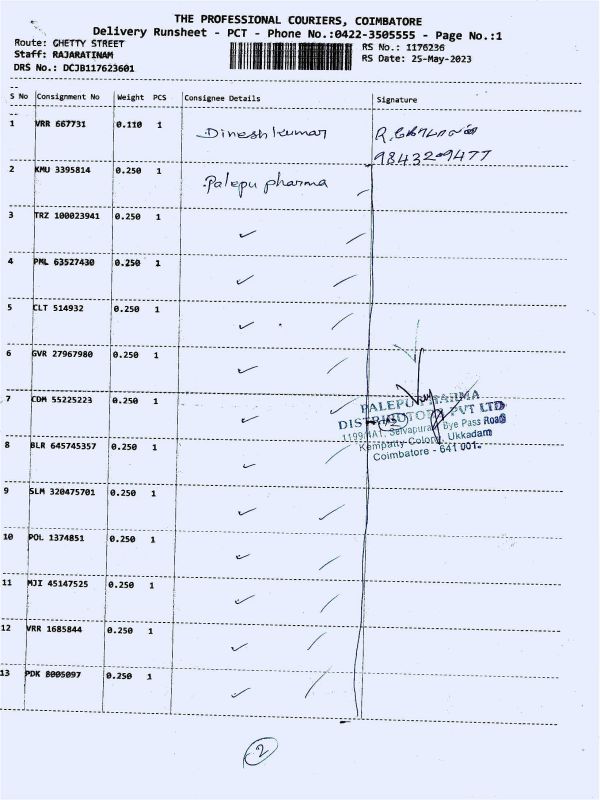 THE PROFESSIONAL COURIERS, COIMBATORE
Delivery Runsheet - PCT - Phone No.:0422-3505555 - Page No.:1
Route: GHETTY STREET
Staff: RAJARATINAM
DRS No.: DCJB117623601
RS No.: 1176236
RS Date: 25-May-2023
S No Consignment No Weight PCS Consignee Details Signature
1 VRR 667731 0.110 1 Dinesh kumar R.
9843209477
2 KMU 3395814 0.250 1 Palepu pharma
3 TRZ 100023941 0.250 1
4 PML 63527430 0.250 1
5 CLT 514932 0.250 1
6 GVR 27967980 0.250 1
7 CDM 55225223 0.250 1
PALEPU PHARMA
DISTRIBUTORS PVT LTD
1199/4A1, Selvapuram Bye Pass Road
Kempatty Colony, Ukkadam
Coimbatore - 641 001.
8 BLR 645745357 0.250 1
9 SLM 320475701 0.250 1
10 POL 1374851 0.250 1
11 MJI 45147525 0.250 1
12 VRR 1685844 0.250 1
13 PDK 8005097 0.250 1
2